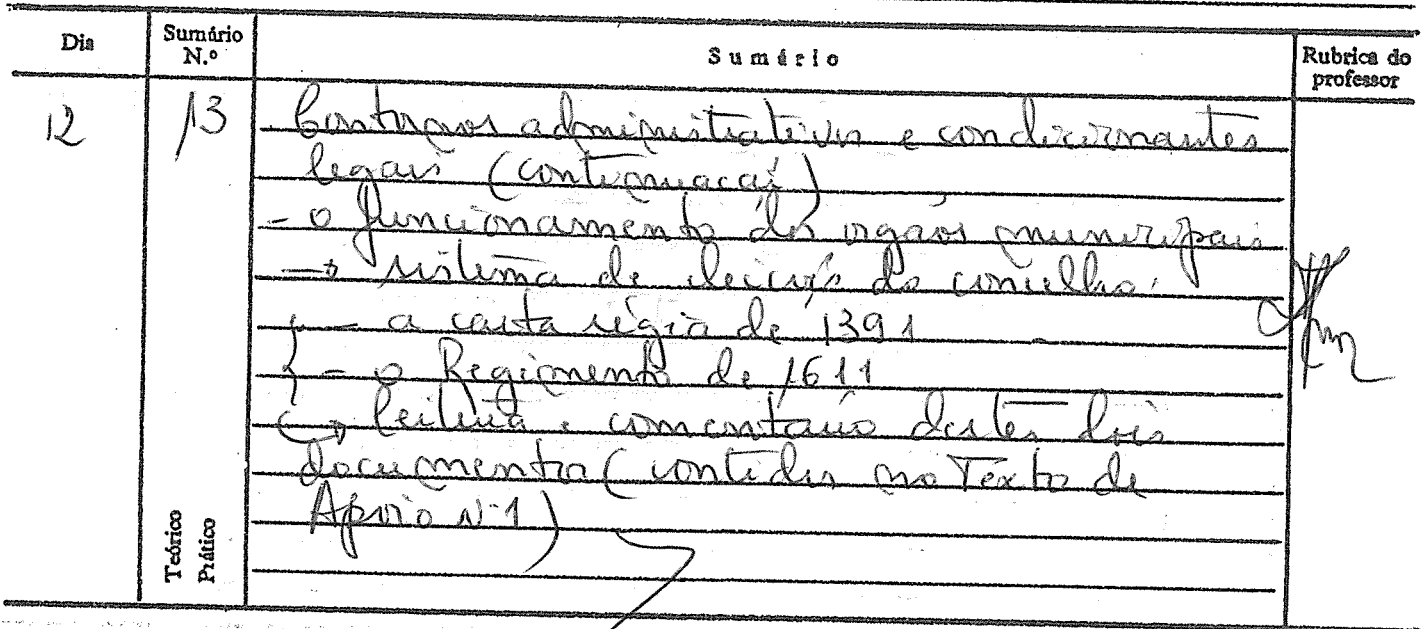 Dia
Sumário N.º
Sumário
Rubrica do professor
12
13
Contornos administrativos e condicionantes
legais (continuação)
- o funcionamento dos orgãos municipais
→ sistema de eleição do concelho:
- a carta régia de 1391
- o Regimento de 1611
→ leitura e comentário destes dois
documentos (contidos no Texto de
Apoio Nº1)
Teórico
Prático